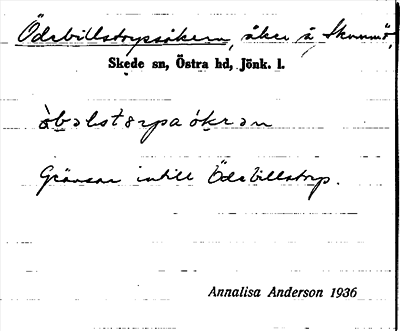 Ödebillstorpsåkern, åker å Skurmö,
Skede sn, Östra hd, Jönk. l.
öbəlstərpaåkrən
Gränsar intill Ödebillstorp.
Annalisa Anderson 1936